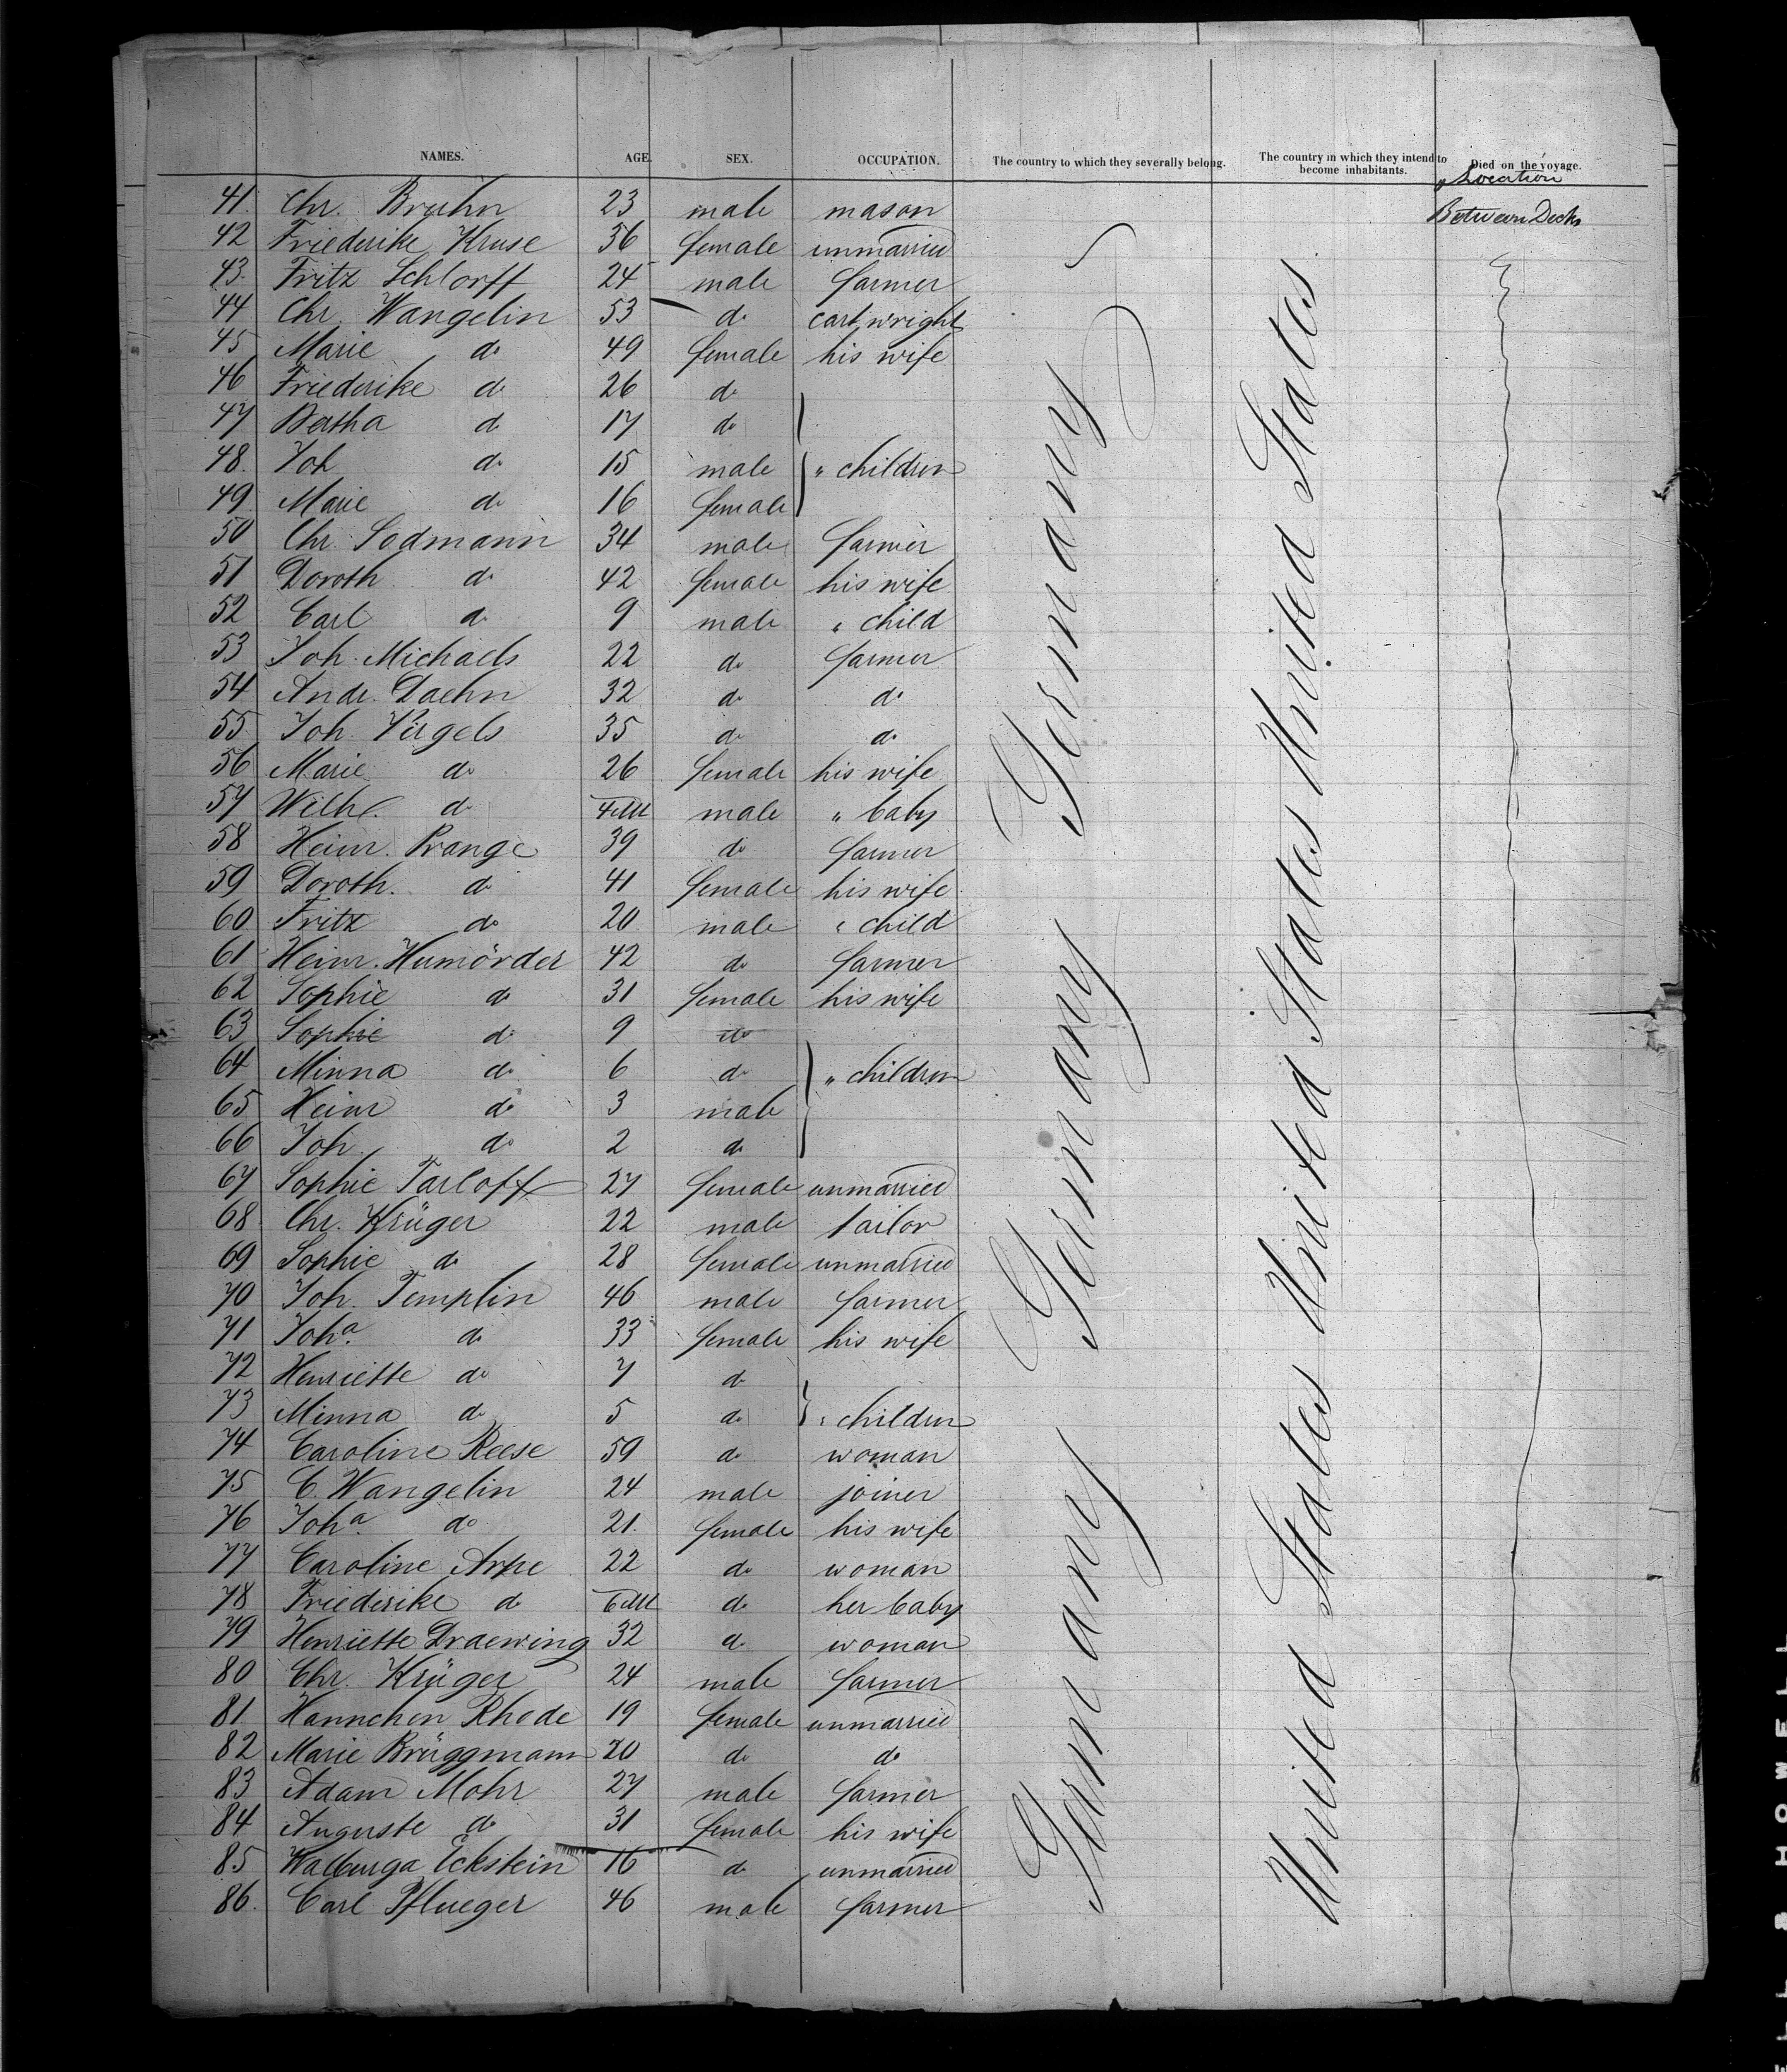 NAMES. AGE. SEX. OCCUPATION. The country to which they severally belong. The country in which they intend to become inhabitants. Died on the voyage.
Location
41. Chr. Bruhn 23 male mason Between Decks
42 Friederike Kruse 36 female unmarried
43. Fritz Schlorff 24 male farmer
44 Chr. Wangelin 53 do cartwright
45 Marie do 49 female his wife
46 Friederike do 26 do
47 Bertha do 17 do
48. Joh do 15 male " children
49 Marie do 16 female
50 Chr. Sodmann 34 male farmer
51 Doroth do 42 female his wife
52 Carl do 9 male " child
53 Joh. Michaels 22 do farmer
54 Andr. Daehn 32 do do
55 Joh. Virgels 35 do do
56 Marie do 26 female his wife
57 Wilh. do 4 M male " baby
58 Heinr. Prange 39 do farmer
59 Doroth. do 41 female his wife
60 Fritz do 20 male " child
61 Heinr. Humörder 42 do farmer
62 Sophie do 31 female his wife
63 Sophie do 9 do
64 Minna do 6 do " children
65 Heinr do 3 male
66 Joh. do 2 do
67 Sophie Tarloff 27 female unmarried
68 Chr. Krüger 22 male tailor
69 Sophie do 28 female unmarried
70 Joh. Templin 46 male farmer
71 Joha. do 33 female his wife
72 Henriette do 7 do
73 Minna do 5 do " children
74 Caroline Reese 59 do woman
75 C. Wangelin 24 male joiner
76 Joha. do 21. female his wife
77 Caroline Arpe 22 do woman
78 Friederike do 6 M do her baby
79 Henriette Draewing 32 do woman
80 Chr. Krüger 24 male farmer
81 Hannchen Rhode 19 female unmarried
82 Marie Brüggmann 20 do do
83 Adam Mohr 27 male farmer
84 Auguste do 31 female his wife
85 Walburga Eckstein 16 do unmarried
86. Carl Pflueger 46 male farmer
Germany Germany Germany
United States United States United States